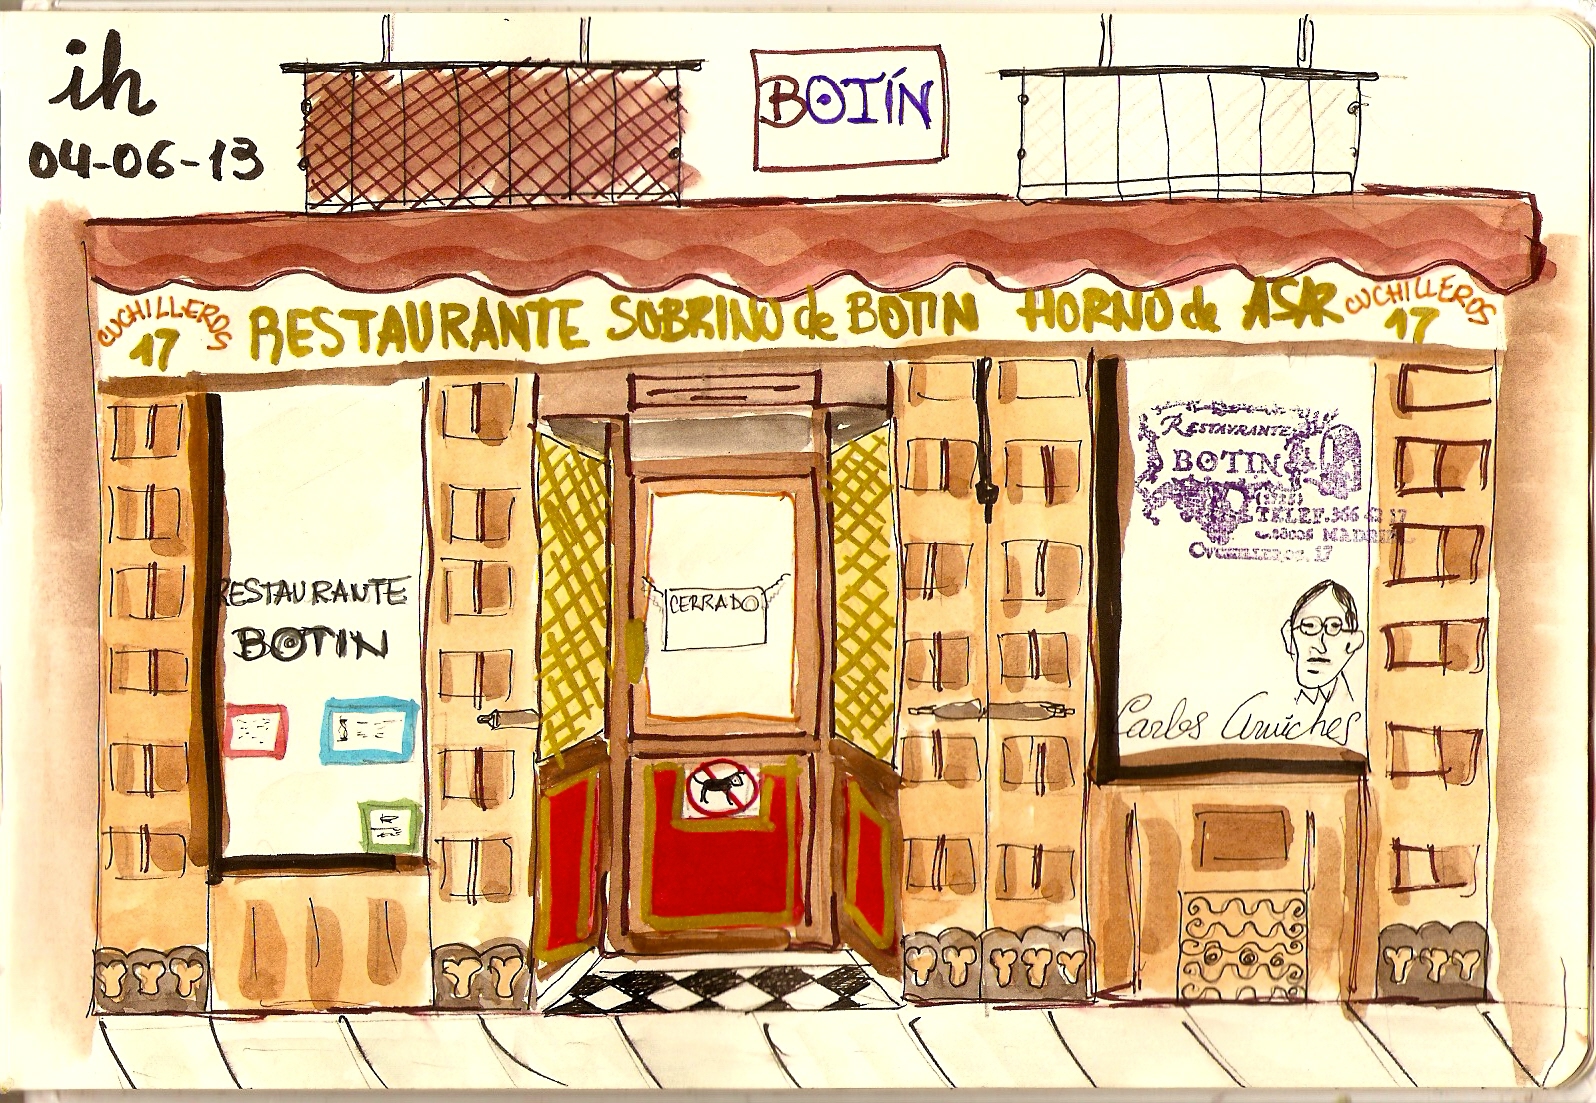 ih
04-06-13
BOTÍN
CUCHILLEROS
17
RESTAURANTE SOBRINO de BOTIN HORNO de ASAR
CUCHILLEROS
17
RESTAURANTE
BOTIN
CERRADO
RESTAURANTE
BOTIN
(1725)
TELEF. 366 42 17
28005 MADRID
CUCHILLEROS, 17
Carlos Arniches